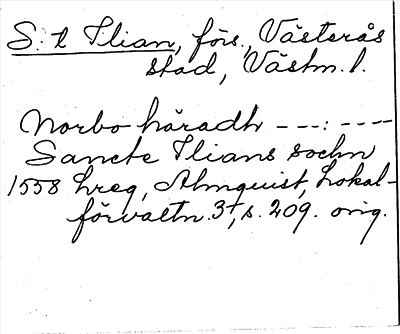 S:t Ilian, förs., Västerås
stad, Västm. l.
Norbo häradh ---:----
Sancte Ilians sochn
1558 hreg, Almquist, Lokal-
förvaltn. 3†, s. 209. orig.